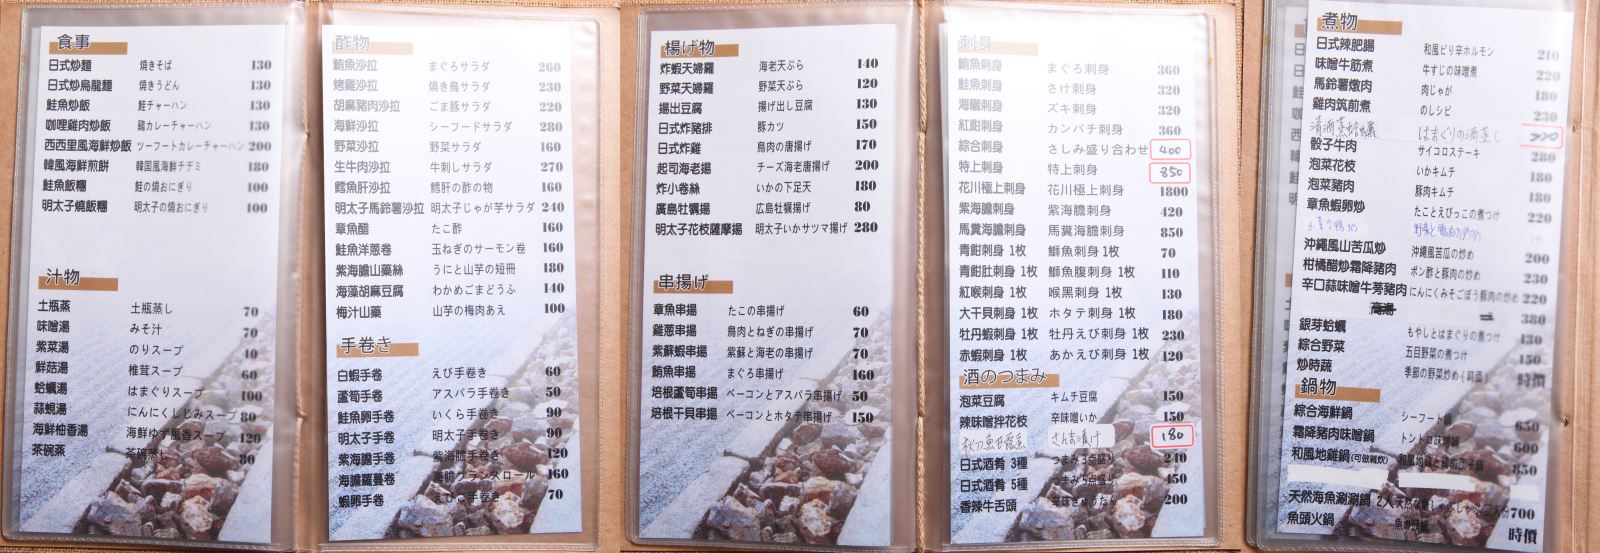 食事
日式炒麵 焼きそば 130
日式炒烏龍麵 焼きうどん 130
鮭魚炒飯 鮭チャーハン 130
咖哩雞肉炒飯 鶏カレーチャーハン 130
西西里風海鮮炒飯 ツーフートカレーチャーハン 200
韓風海鮮煎餅 韓国風海鮮チヂミ 180
鮭魚飯糰 鮭の焼おにぎり 100
明太子燒飯糰 明太子の焼おにぎり 100
汁物
土瓶蒸 土瓶蒸し 70
味噌湯 みそ汁 70
紫菜湯 のりスープ 40
鮮菇湯 椎茸スープ 60
蛤蠣湯 はまぐりスープ 100
蒜蜆湯 にんにくしじみスープ 80
海鮮柚香湯 海鮮ゆず風香スープ 120
茶碗蒸 茶碗蒸し 80
酢物
鮪魚沙拉 まぐろサラダ 260
烤雞沙拉 焼き鳥サラダ 230
胡麻豬肉沙拉 ごま豚サラダ 220
海鮮沙拉 シーフードサラダ 280
野菜沙拉 野菜サラダ 160
生牛肉沙拉 牛刺しサラダ 270
鱈魚肝沙拉 鱈肝の酢の物 160
明太子馬鈴薯沙拉 明太子じゃが芋サラダ 240
章魚醋 たこ酢 160
鮭魚洋蔥卷 玉ねぎのサーモン卷 160
紫海膽山藥絲 うにと山芋の短冊 180
海藻胡麻豆腐 わかめごまどうふ 140
梅汁山藥 山芋の梅肉あえ 100
手卷き
白蝦手卷 えび手卷き 60
蘆筍手卷 アスパラ手卷き 50
鮭魚卵手卷 いくら手卷き 90
明太子手卷 明太子手卷き 90
紫海膽手卷 紫海膽手卷き 120
海膽蘿蔓卷 海膽グランスロール 160
蝦卵手卷 えびこ手卷き 70
楊げ物
炸蝦天婦羅 海老天ぷら 140
野菜天婦羅 野菜天ぷら 120
揚出豆腐 揚げ出し豆腐 130
日式炸豬排 豚カツ 150
日式炸雞 鳥肉の唐揚げ 170
起司海老揚 チーズ海老唐揚げ 200
炸小卷絲 いかの下足天 180
廣島牡蠣揚 広島牡蠣揚げ 80
明太子花枝薩摩揚 明太子いかサツマ揚げ 280
串揚げ
章魚串揚 たこの串揚げ 60
雞蔥串揚 鳥肉とねぎの串揚げ 70
紫蘇蝦串揚 紫蘇と海老の串揚げ 70
鮪魚串揚 まぐろ串揚げ 160
培根蘆筍串揚 ベーコンとアスパラ串揚げ 50
培根干貝串揚 ベーコンとホタテ串揚げ 150
刺身
鮪魚刺身 まぐろ刺身 360
鮭魚刺身 さけ刺身 320
海鱺刺身 ズキ刺身 320
紅魽刺身 カンパチ刺身 360
綜合刺身 さしみ盛り合わせ 400
特上刺身 特上刺身 850
花川極上刺身 花川極上刺身 1800
紫海膽刺身 紫海膽刺身 420
馬糞海膽刺身 馬糞海膽刺身 850
青魽刺身 1枚 鰤魚刺身 1枚 70
青魽肚刺身 1枚 鰤魚腹刺身 1枚 110
紅喉刺身 1枚 喉黑刺身 1枚 130
大干貝刺身 1枚 ホタテ刺身 1枚 180
牡丹蝦刺身 1枚 牡丹えび刺身 1枚 230
赤蝦刺身 1枚 あかえび刺身 1枚 120
酒のつまみ
泡菜豆腐 キムチ豆腐 150
辣味噌拌花枝 辛味噌いか 150
秋刀魚甘露煮 さんま漬け 180
日式酒肴 3種 つまみ3点盛り 240
日式酒肴 5種 つまみ5点盛り 450
香辣牛舌頭 辛味ぎゅうたん 200
煮物
日式辣肥腸 和風ピリ辛ホルモン 210
味噌牛筋煮 牛すじの味噌煮 220
馬鈴薯燉肉 肉じゃが 180
雞肉筑前煮 のしシピ 230
清酒蒸蛤蠣 はまぐりの酒蒸し 220
骰子牛肉 サイコロステーキ 280
泡菜花枝 いかキムチ 180
泡菜豬肉 豚肉キムチ 180
章魚蝦卵炒 たことえびっこの煮つけ 220
野菜と鴨肉の炒め
沖繩風山苦瓜炒 沖繩風苦瓜の炒め 200
柑橘醋炒霜降豬肉 ポン酢と豚肉の炒め 230
辛口蒜味噌牛蒡豬肉 にんにくみそごぼう豚肉の炒め 220
380
銀芽蛤蠣 もやしとはまぐりの煮つけ 130
綜合野菜 五目野菜の煮つけ 150
炒時蔬 季節の野菜炒め(時価) 時價
鍋物
綜合海鮮鍋 シーフート鍋 650
霜降豬肉味噌鍋 トントロ味噌鍋 600
和風地雞鍋(可做雜炊) 850
天然海魚涮涮鍋 2人 700
魚頭火鍋 時價